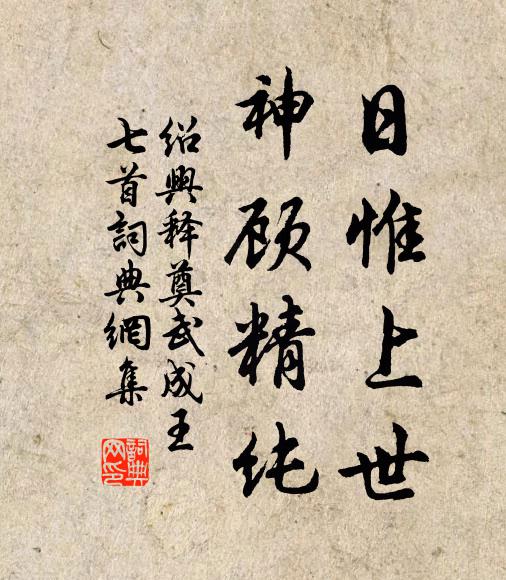 日惟上世
神顾精纯
绍興释奠武成王
七首詞典網集
詞典網印